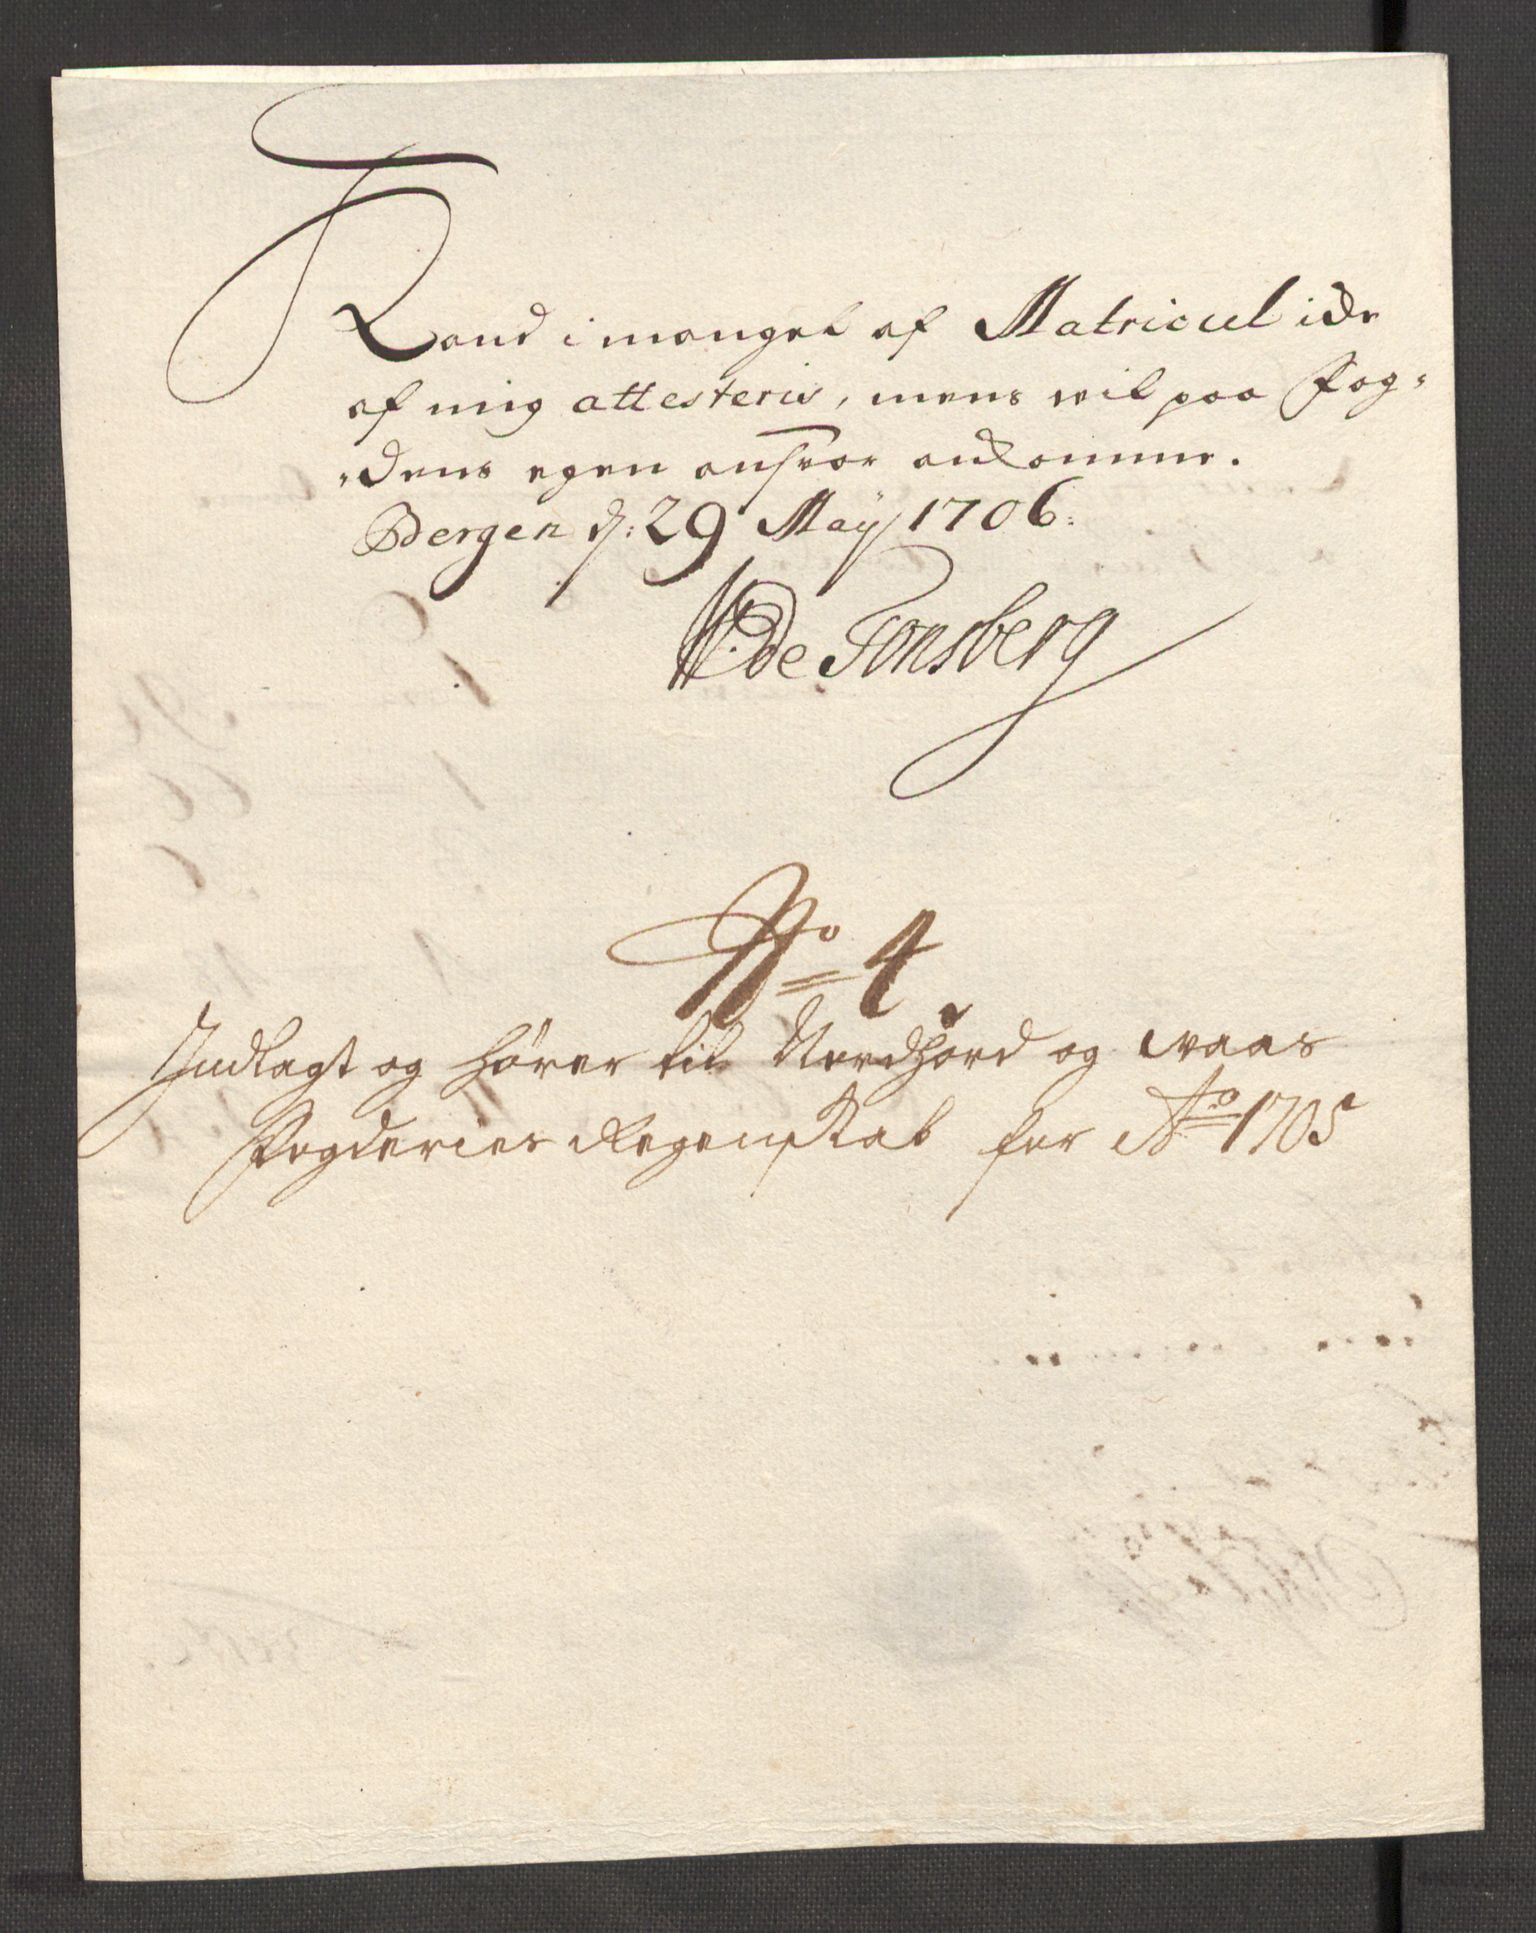 Kand i mangel af Matricul icke
af mig attesteris, mens vil paa Fog-
-dens egen ansvar ankomme.
Bergen d: 29 May 1706:
de Tonsberg
No 4
Indlagt og hører til Nordhord og Waas
Fogderies Regenskab for Ao 1705